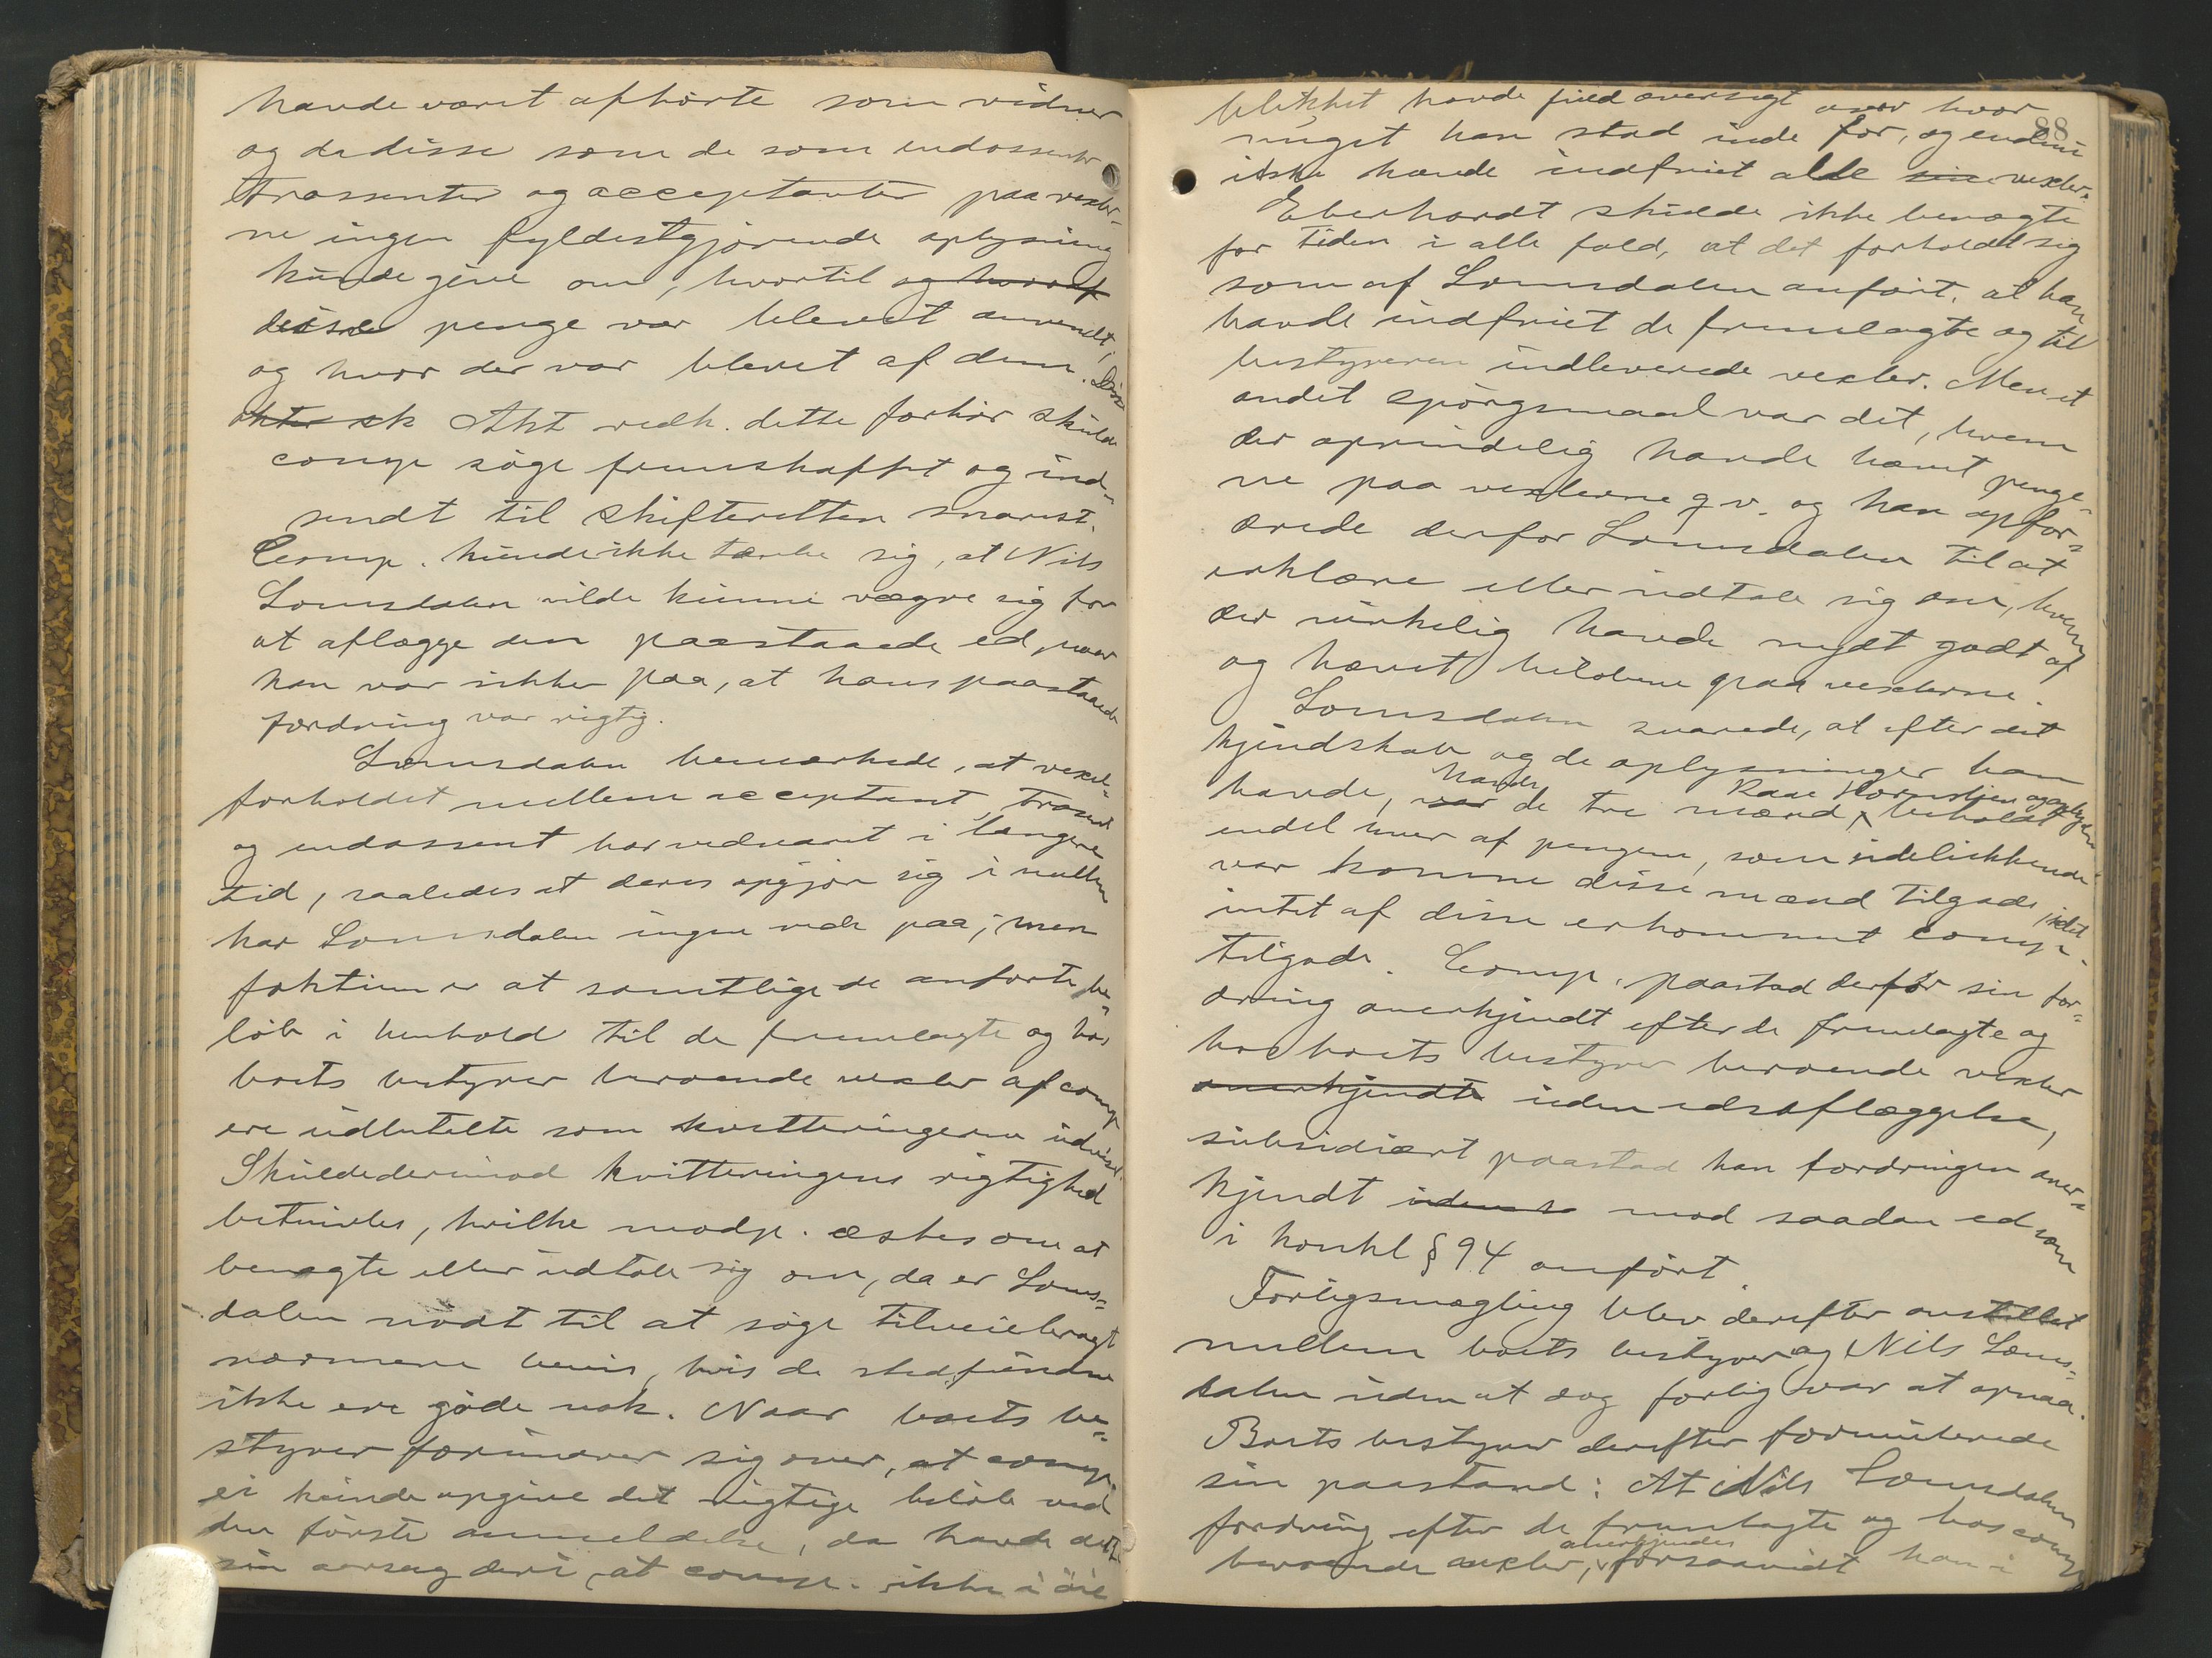 havde været afhørte som vidner
og da disse som de som endossenter
trassenter og acceptanter paa vexler-
ne ingen fyldestgjørende oplysning
kunde give om, hvortil og hvoraf
disse penge var blevet anvendt,
og hvor der var blevet af dem. Disse
akter sk Akt vedk. dette forhør skulde
comp søge fremskaffet og ind-
sendt til skifteretten snarest.
Comp. kunde ikke tænke sig, at Nils
Lomsdalen vilde kunne vægre sig for
at aflægge den paastaaede ed, naar
han var sikker paa, at hans paastaaede
fordring var rigtig.
Lomsdalen bemærkede, at vexel-
forholdet mellem acceptant, trassent
og endossent har vedvaret i længere
tid, saaledes at deres opgjør sig i mellem
har Lomsdalen ingen rede paa; men
faktum er at samtlige de anførte be-
løb i henhold til de fremlagte og hos
boets bestyrer beroende vexler af comp
ere udbetalte som kvitteringerne udviser.
Skulde derimod kvitteringens rigtighed
betvivles, hvilke modp. æskes om at
benægte eller udtale sig om, da er Loms-
dalen nødt til at søge tilveiebragt
nærmere bevis, hvis de stedfundne
ikke ere gode nok. Naar boets be-
styrer forundrer sig over, at comp.
ei kunde opgive det rigtige beløb ved
den første anmeldelse, da havde dette
sin aarsag deri, at comp. ikke i øie
88
blikket havde fuld oversigt over hvor
meget han stod inde for, og endnu
ikke havde indfriet alle sine vexler.
Eberhardt skulde ikke benægte
for tiden i alle fald, at det forholdt sig
som af Lomsdalen anført, at han
havde indfriet de fremlagte og til
bestyreren indleverede vexler. Men et
andet spørgsmaal var det, hvem
der oprindelig havde hævet penge-
ne paa vexlerne o. v. og han opfor-
drede derfor Lomsdalen til at
erklære eller udtale sig om, hvem
der virkelig havde nydt godt af
og hævet beløbene paa vexlerne.
Lomsdalen svarede, at efter det
kjendskab og de oplysninger han
havde, var havde de tre mænd, beholdt
endel hver af pengene, som udelukkende
var komne disse mænd tilgode, idet
intet af disse erkommet comp.
tilgode. Comp. paastod derfor sin for-
dring anerkjendt efter de fremlagte og
hos boets bestyrer beroende vexler
anerkjendte uden edsaflæggelse,
subsidiært paastod han fordringen aner-
kjendt mod saadan ed som
i konkl § 94 anført.
Forligsmægling blev derefter anstillet
mellem boets bestyrer og Nils Loms-
dalen uden at dog forlig var at opnaa.
Boets bestyrer derefter formulerede
sin paastand: At Nils Lomsdalens
fordring efter de fremlagte og hos comp
beroende vexler, anerkjendes forsaavidt han i